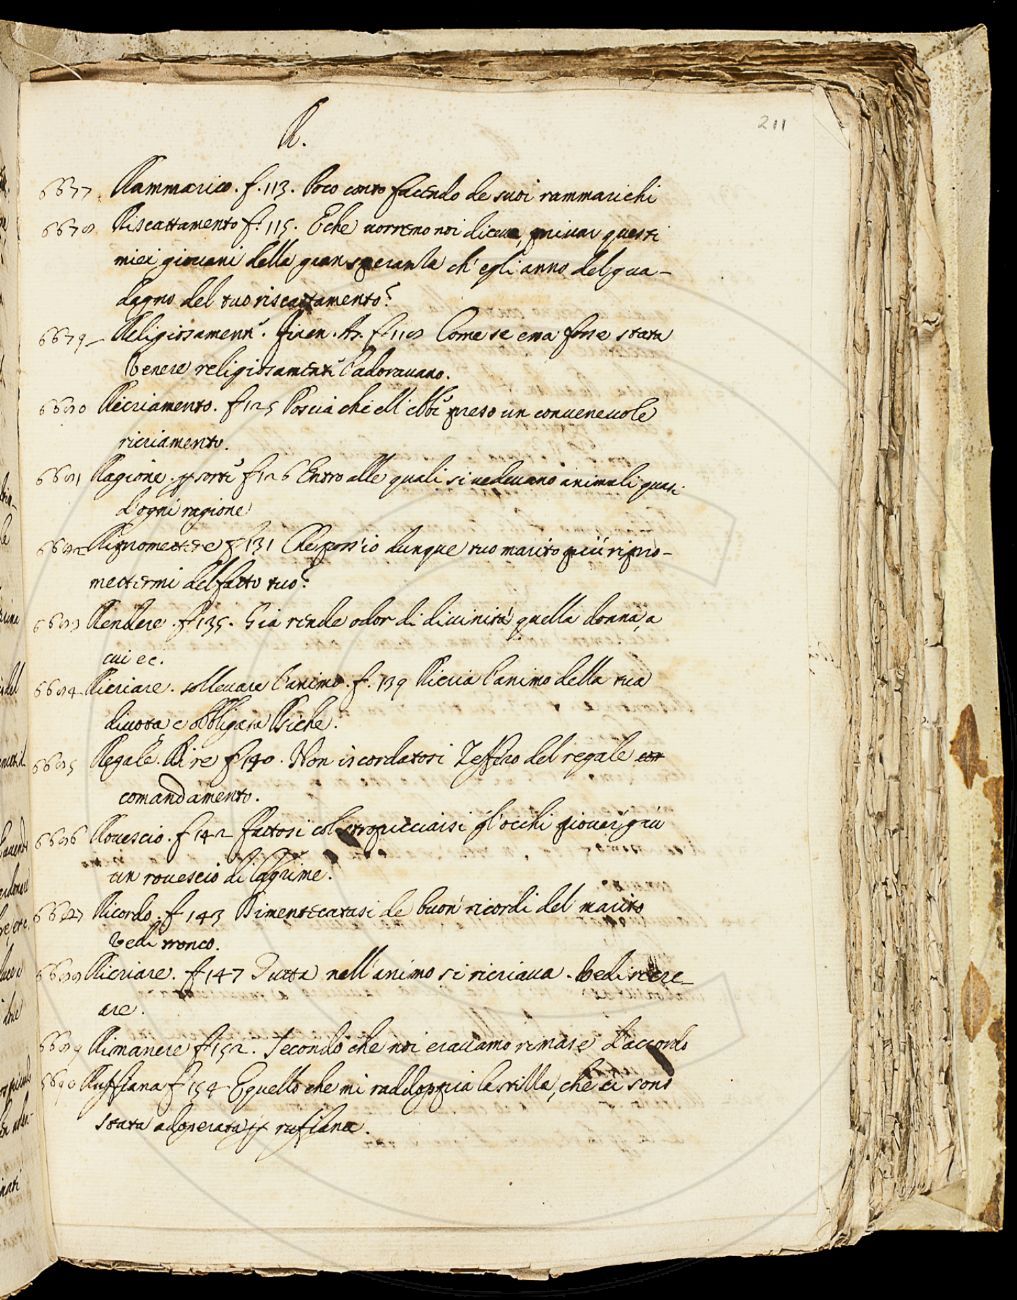 211
R.
6677. Rammarico. f. 113. Poco conto facendo de suoi rammarichi
6678. Riscattamento f. 115. E che vorremo noi dicea, privar questi
miei giovani della gran speranza ch'egli anno del gua-
dagno del tuo riscattamento?
6679 Religiosamente. Firen. As. f. 118 Come se ema forse stata
Venere religiosamente l'adoravano.
6680 Ricriamento. f. 125 Poscia che ell'ebbe preso un convenevole
ricriamento.
6681 Ragione p sorte f 126 Entro alle quali si vedevano animali quasi
d'ogni ragione
6682 Ripromettere f 131 Che poss'io dunque tuo marito più ripro-
mettermi del fatto tuo?
6683 Rendere. f. 135. Già rende odor di divinità quella donna, a
cui ec.
6684 Ricriare. sollevare l'animo. f. 139 Ricria l'animo della tua
divota e obbligata Psiche.
6685 Regale. Di re f 140. Non iscordatosi Zeffiro del regale
comandamento.
6686 Rovescio. f 142 fattosi col stropicciarsi gl'occhi piover giau
un rovescio di lagrime.
6687 Ricordo. f 143 Dimenticatasi de buon ricordi del marito
Vedi tronco.
6688 Ricriare. f 147 Tutta nell'animo si ricriava. Vedi recre-
are.
6689 Rimanere f 152. Secondo che noi eravamo rimase d'accordo
6690 Ruffiana f 154 E quello che mi raddoppia la stilla, che ci sono
stata adoperata p rufiana.